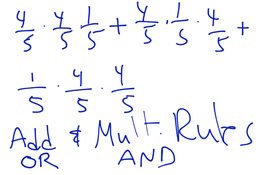 4/5 · 4/5 1/5 + 4/5 · 1/5 · 4/5 +
1/5 · 4/5 · 4/5
Add & Mult. Rules
OR AND